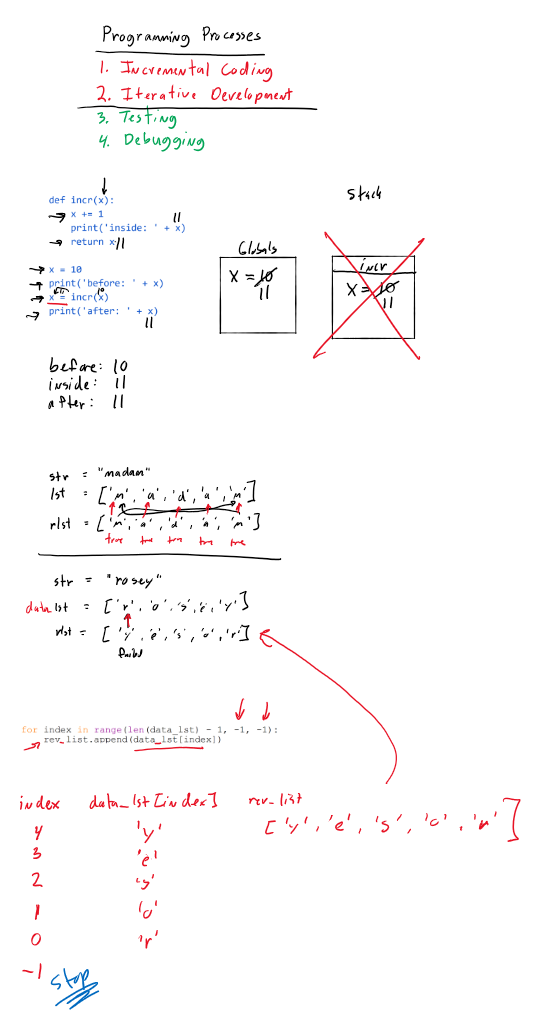 Programming Processes
1. Incremental Coding
2. Iterative Development
3. Testing
4. Debugging
Stack
def incr(x):
x += 1 11
print('inside: ' + x)
return x 11
x = 10
print('before: ' + x)
10
x = incr(x)
print('after: ' + x)
11
Globals
x = 10
11
incr
x = 10
11
before: 10
inside: 11
after: 11
str = "madam"
lst = ['m', 'a', 'd', 'a', 'm']
rlst = ['m', 'a', 'd', 'a', 'm']
true true true true true
str = "rosey"
data_lst = ['r', 'o', 's', 'e', 'y']
rlst = ['y', 'e', 's', 'o', 'r']
failed
for index in range(len(data_lst) - 1, -1, -1):
rev_list.append(data_lst[index])
index data_lst[index] rev_list
4 'y' ['y', 'e', 's', 'o', 'r']
3 'e'
2 's'
1 'o'
0 'r'
-1 stop